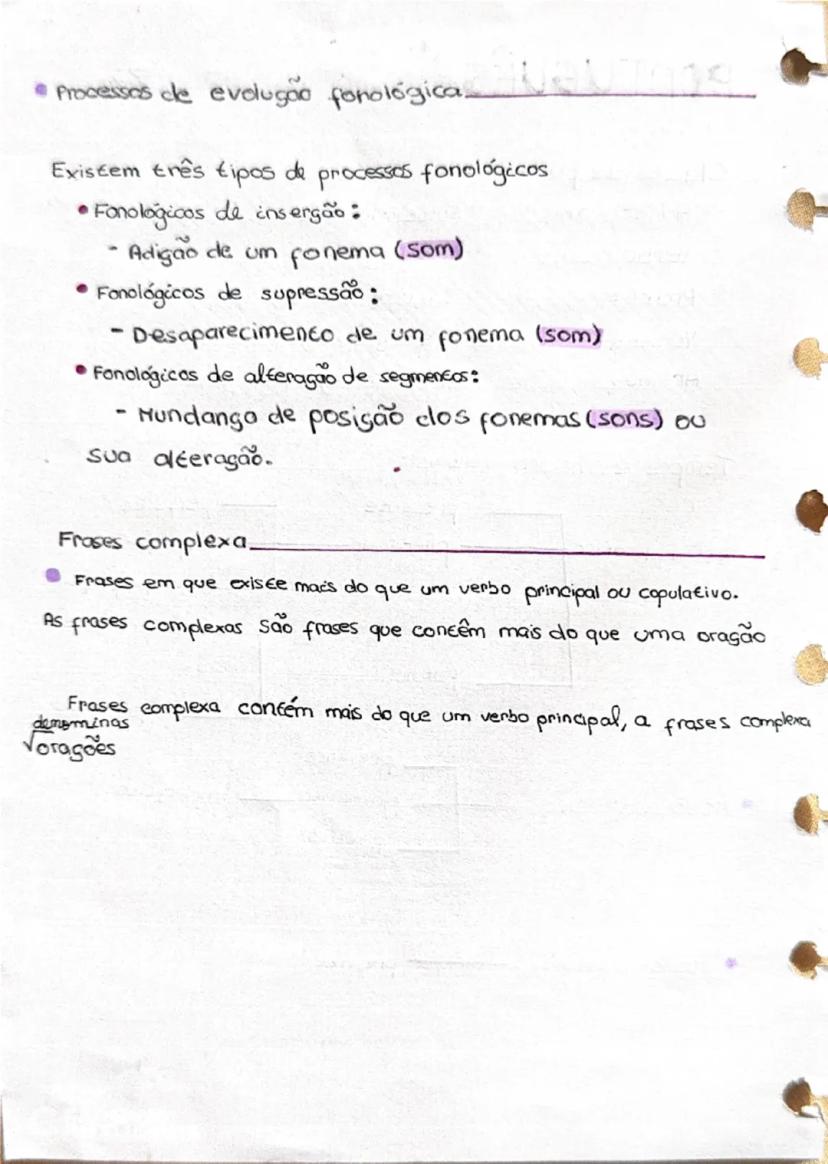 Processos de evolução fonológica
Existem três tipos de processos fonológicos
• Fonológicos de inserção:
- Adição de um fonema (som)
• Fonológicos de supressão:
- Desaparecimento de um fonema (som)
• Fonológicos de alteração de segmentos:
- Mundança de posição dos fonemas (sons) ou
sua alteração.
Frases complexa
Frases em que existe mais do que um verbo principal ou copulativo.
As frases complexas são frases que contêm mais do que uma oração
Frases complexa contém mais do que um verbo principal, a frases complexa
denominas
orações